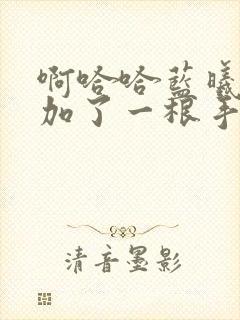 啊哈哈藍曦
加了一根手
清音墨影